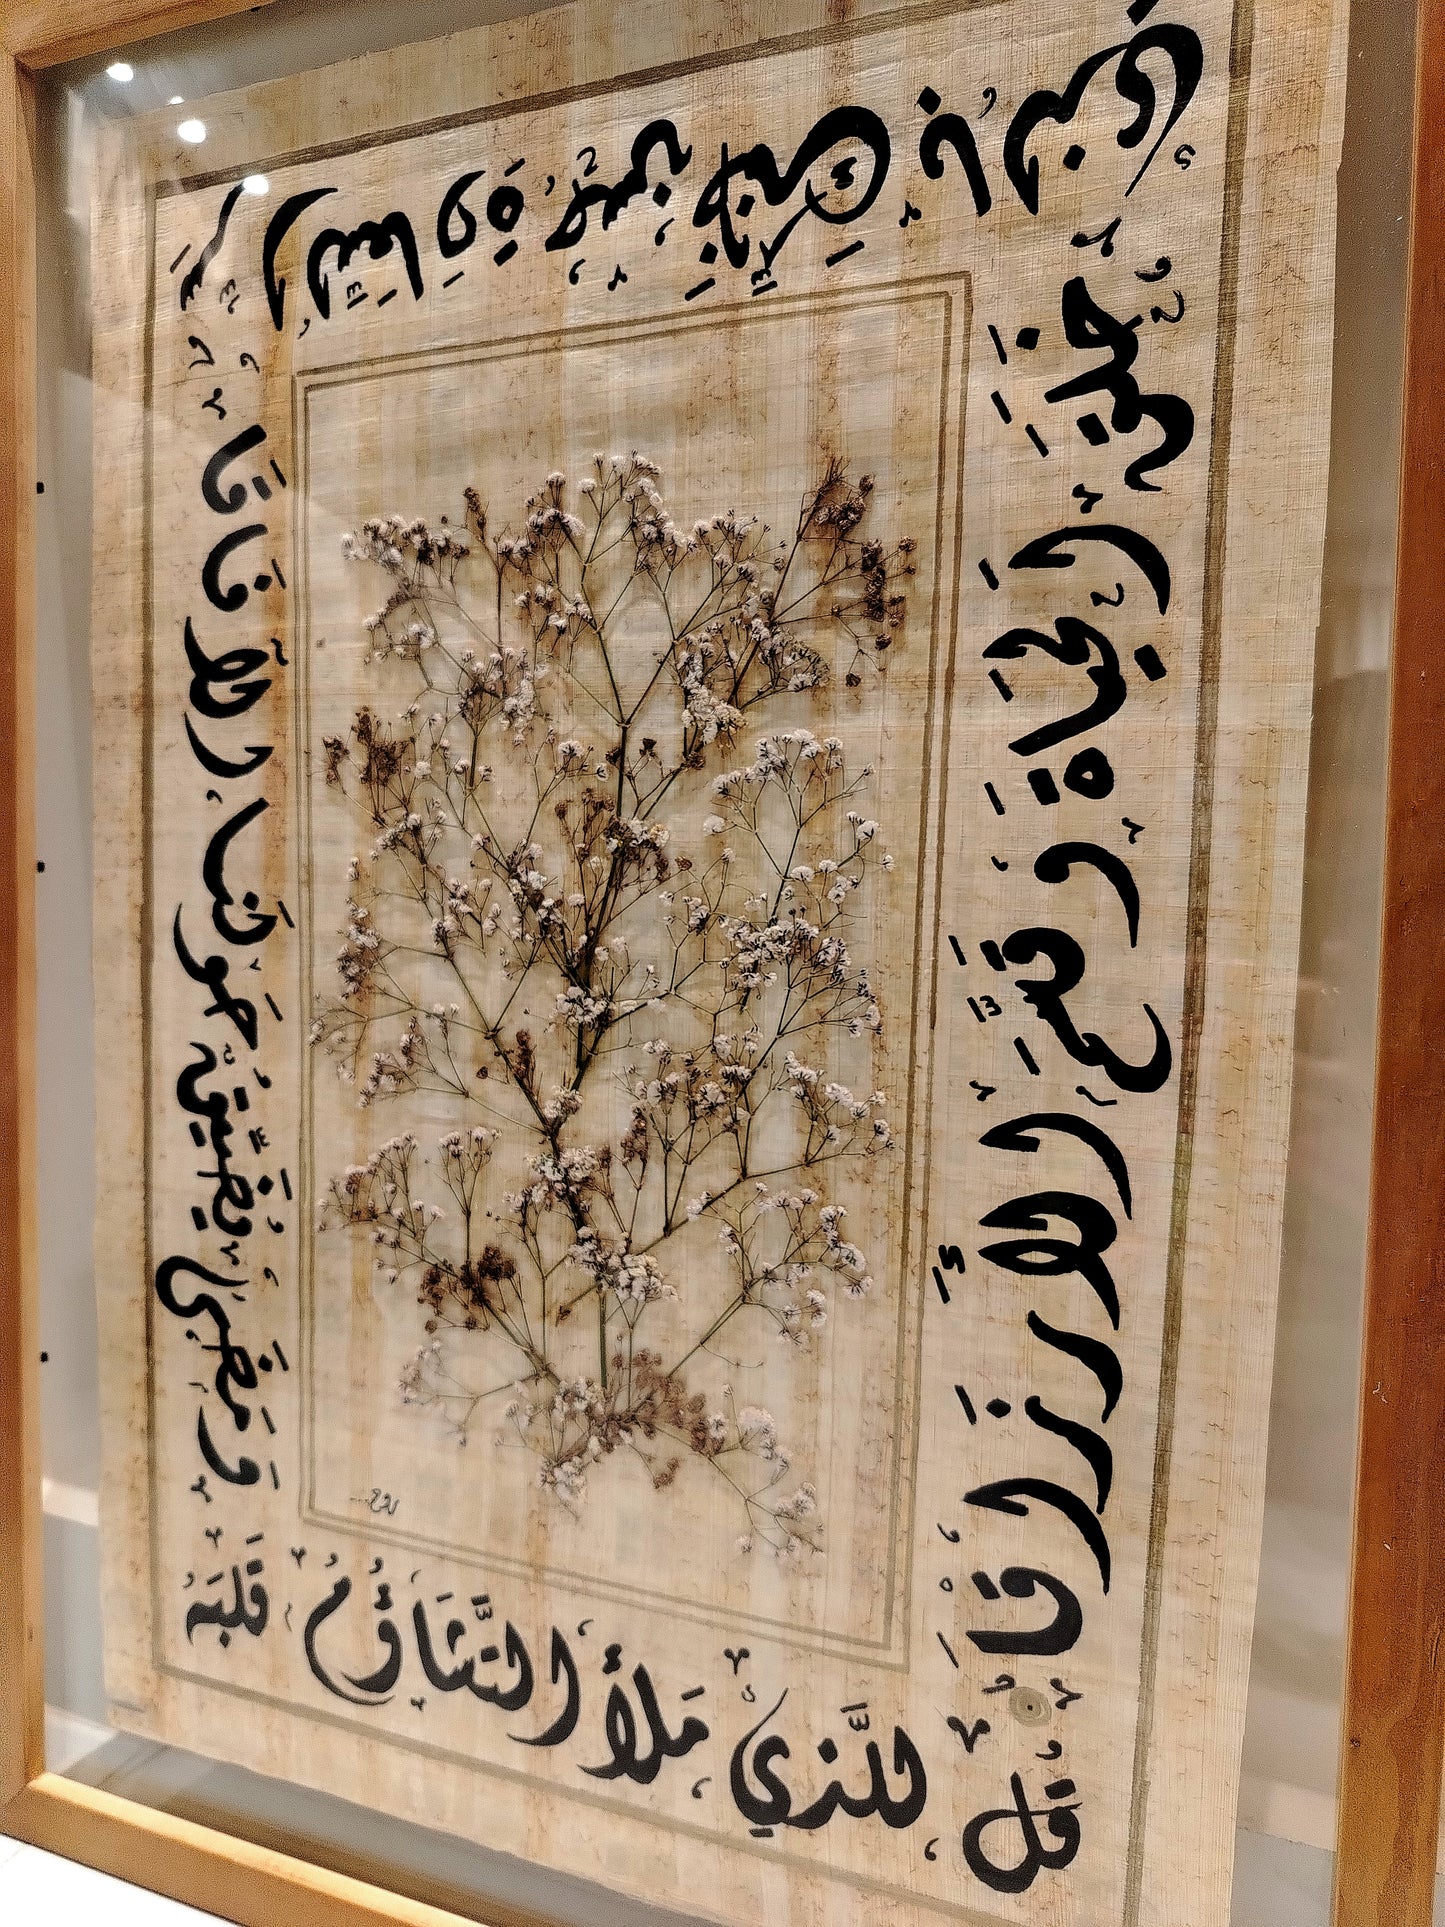 قُل للذي مَلأ التَّشَاؤمُ قَلبَهُ
وَمَضَى يُضيِّقُ حَولنَا الآفَاقَا
سِرُّ السَّعادةِ حُسنُ ظنِّكَ بالذي
خَلَقَ الحَياةَ وقَسَّمَ الأرزَاقَا